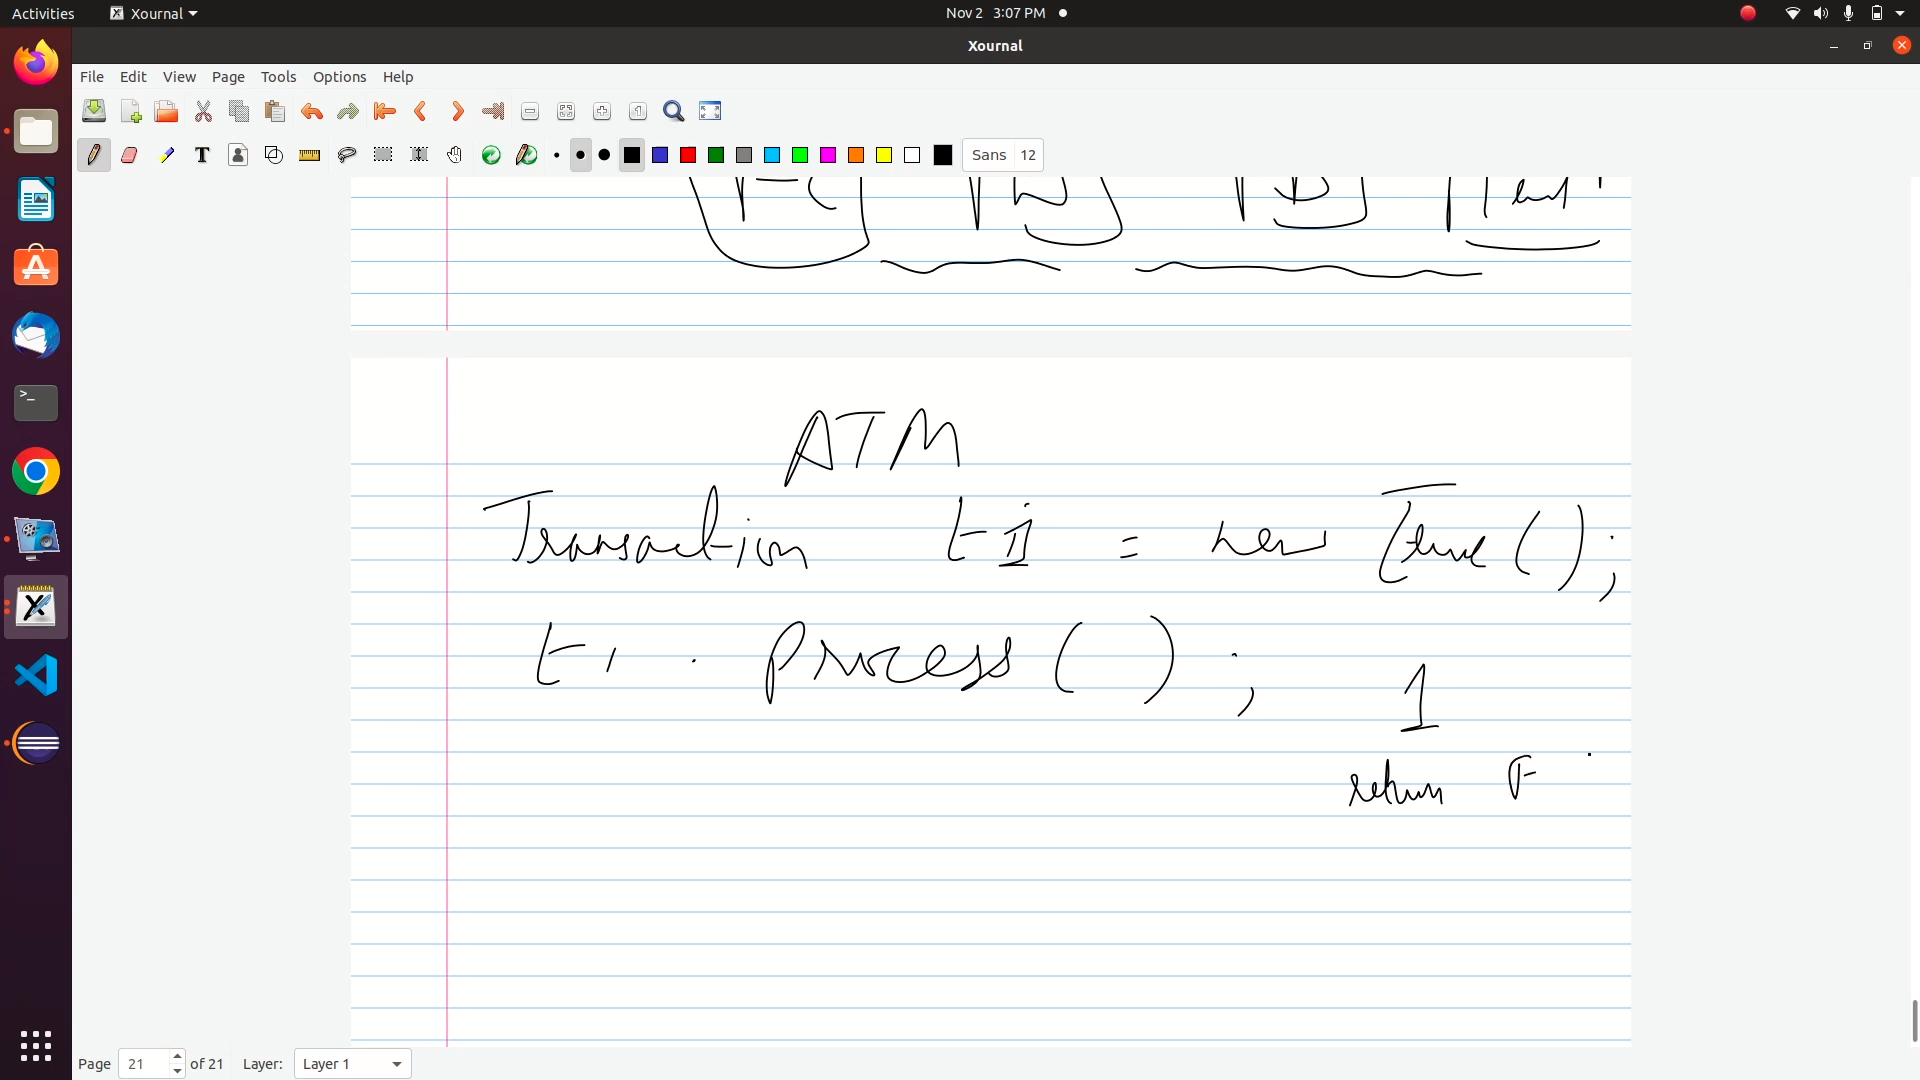 Activities Xournal Nov 2 3:07 PM
Xournal
File Edit View Page Tools Options Help
T Sans 12
ATM
Transaction t1 = new ();
t1 . process ( ) ;
1
return F
Page 21 of 21 Layer: Layer 1